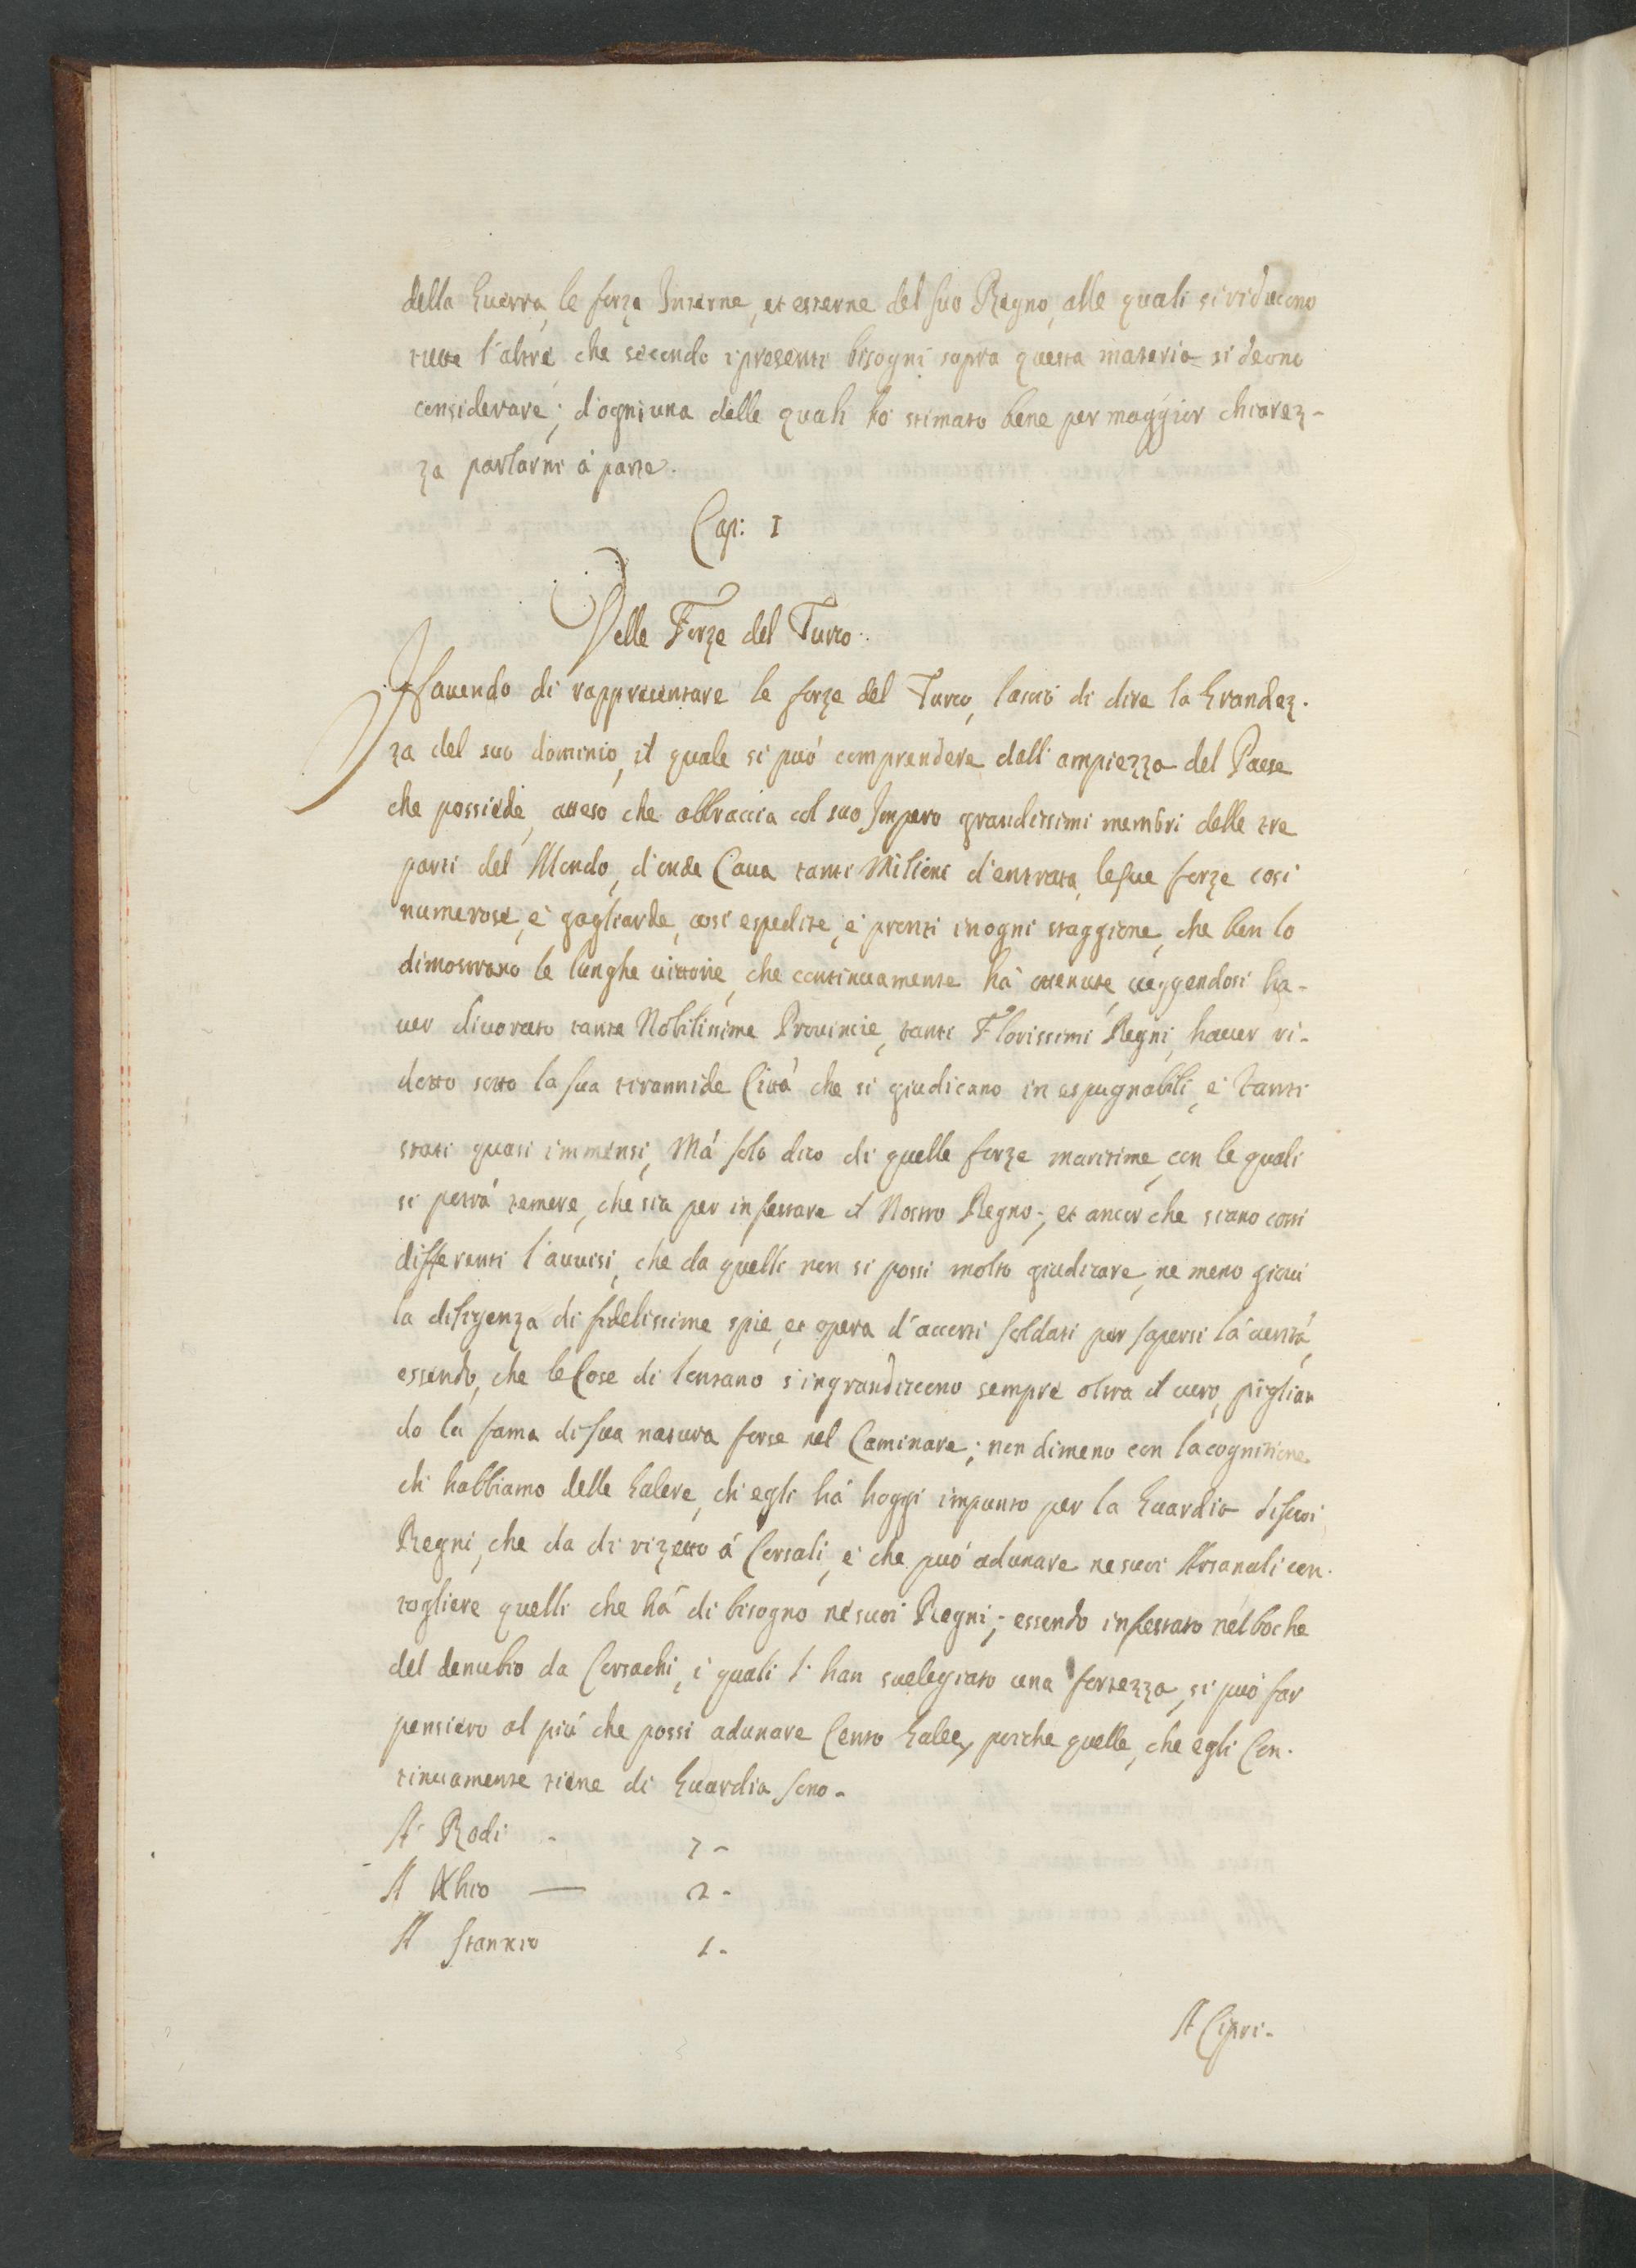 della Guerra, le forze Interne, et esterne del suo Regno, alle quali si riducono
tutte l'altre, che secondo i presenti bisogni sopra questa materia si deono
considerare; d'ogniuna delle quali ho stimato bene per maggior chiarez-
za parlarni à parte.
Cap: I
Delle Forze del Turco.
Havendo di rappresentare le forze del Turco, lascio di dire la Grandez-
za del suo dominio, il quale si può comprendere dall'ampiezza del Paese
che possiede, atteso che abbraccia col suo Impero grandissimi membri delle tre
parti del Mondo, d'onde Caua tanti Milioni d'entrata, le sue forze cosi
numerose, è gagliarde, cosi espedite, è pronti in ogni staggione, che ben lo
dimostrano le lunghe uittorie, che continuamente hà ottenute, ueggendosi ha-
uer diuorato tante Nobilissime Prouincie, tanti Florissimi Regni, hauer ri-
dotto sotto la sua tirannide Città che si giudicano inespugnabili, è tanti
stati quasi immensi, Mà solo dico di quelle forze maritime, con le quali
si potrà temere, che sia per infestare il Nostro Regno; et ancor che siano cossi
differenti l'auuisi, che da quelli non si possi molto giudicare, ne meno gioui
la diligenza di fidelissime spie, et opera d'accorti soldati per sapersi la uerità,
essendo, che le Cose di lontano s'ingrandiscono sempre oltra il uero, piglian
do la fama di sua natura forse nel Caminare; non dimeno con la cognitione
ch'habbiamo delle Galere, ch'egli hà hoggi impunto per la Guardia di suoi
Regni, che da di rizetto à Corsali, è che può adunare ne suoi Arsanali con
togliere quelli che hà di bisogno ne suoi Regni; essendo infestato nel boche
del denubio da Corsachi, i quali li han sualegiato una fortezza, si può far
pensiero al più che possi adunare Cento Galee, perche quelle, che egli Con-
tinuamente tiene di Guardia sono-
A Rodi - 7-
A Xhio — 2-
A Stanxio 1-
A Cipri-